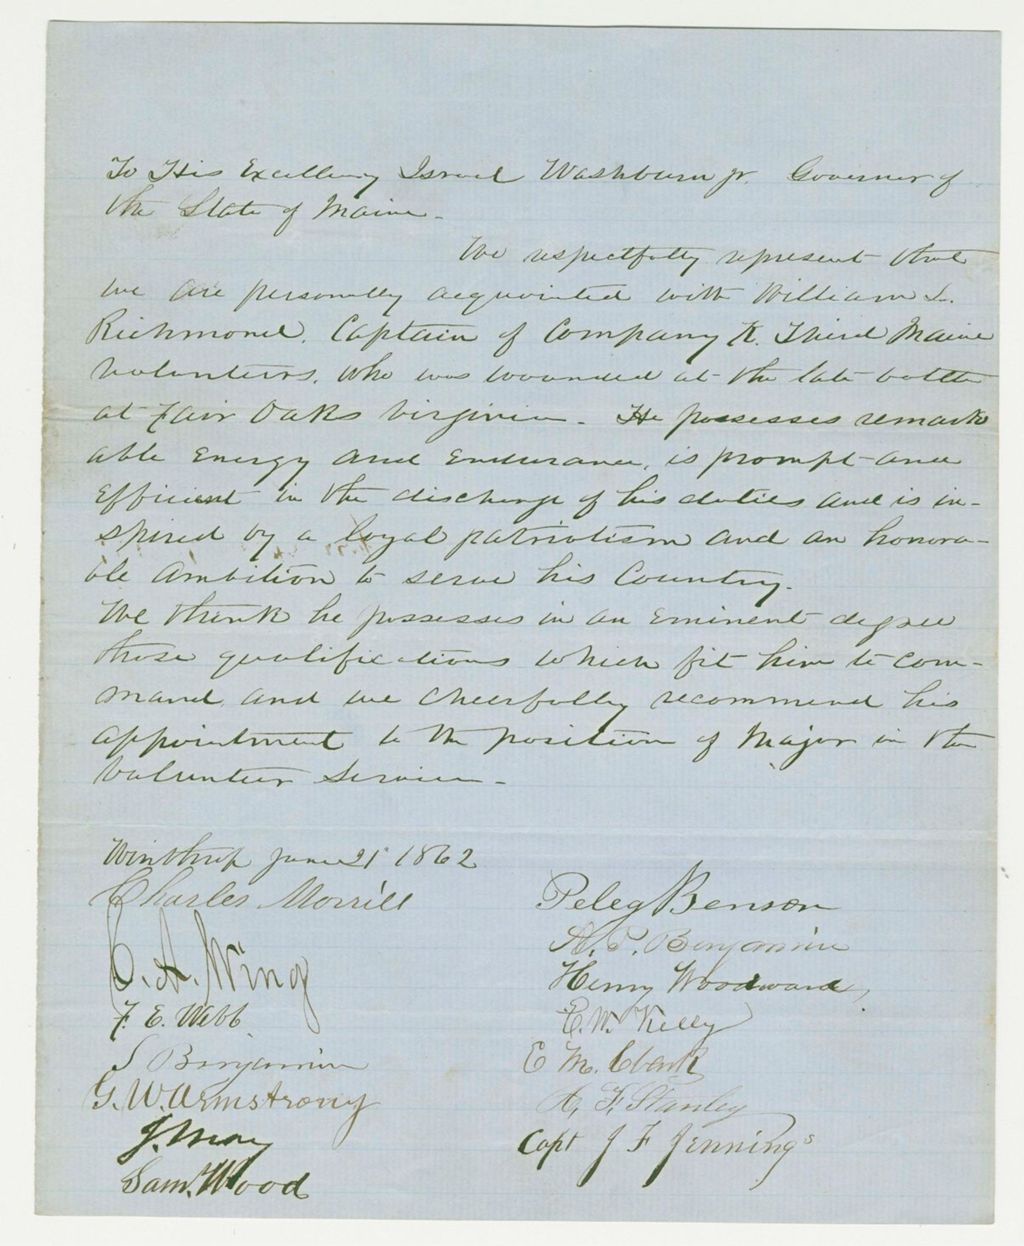 To His Excellency Israel Washburn Jr. Governor of
the State of Maine.
We respectfully represent that
we are personally acquainted with William L.
Richmond, Captain of Company K. Third Maine
Volunteers, who was wounded at the late battle
at Fair Oaks Virginia. He possesses remark
able Energy and Endurance, is prompt and
Efficient in the discharge of his duties and is in-
spired by a loyal patriotism and an honora-
ble Ambition to serve his Country.
We think he possesses in an Eminent degree
those qualifications which fit him to com-
mand, and we cheerfully recommend his
appointment to the position of Major in the
Volunteer Service.
Winthrop June 21 1862
Charles Morrill
C. A. Wing
F. E. Webb
S Benjamin
G. W. Armstrong
J. May
Saml. Wood
Peleg Benson
A. P. Benjamin
Henry Woodward,
E. W. Kelly
E M. Clark
A. F. Stanley
Capt J F Jennings